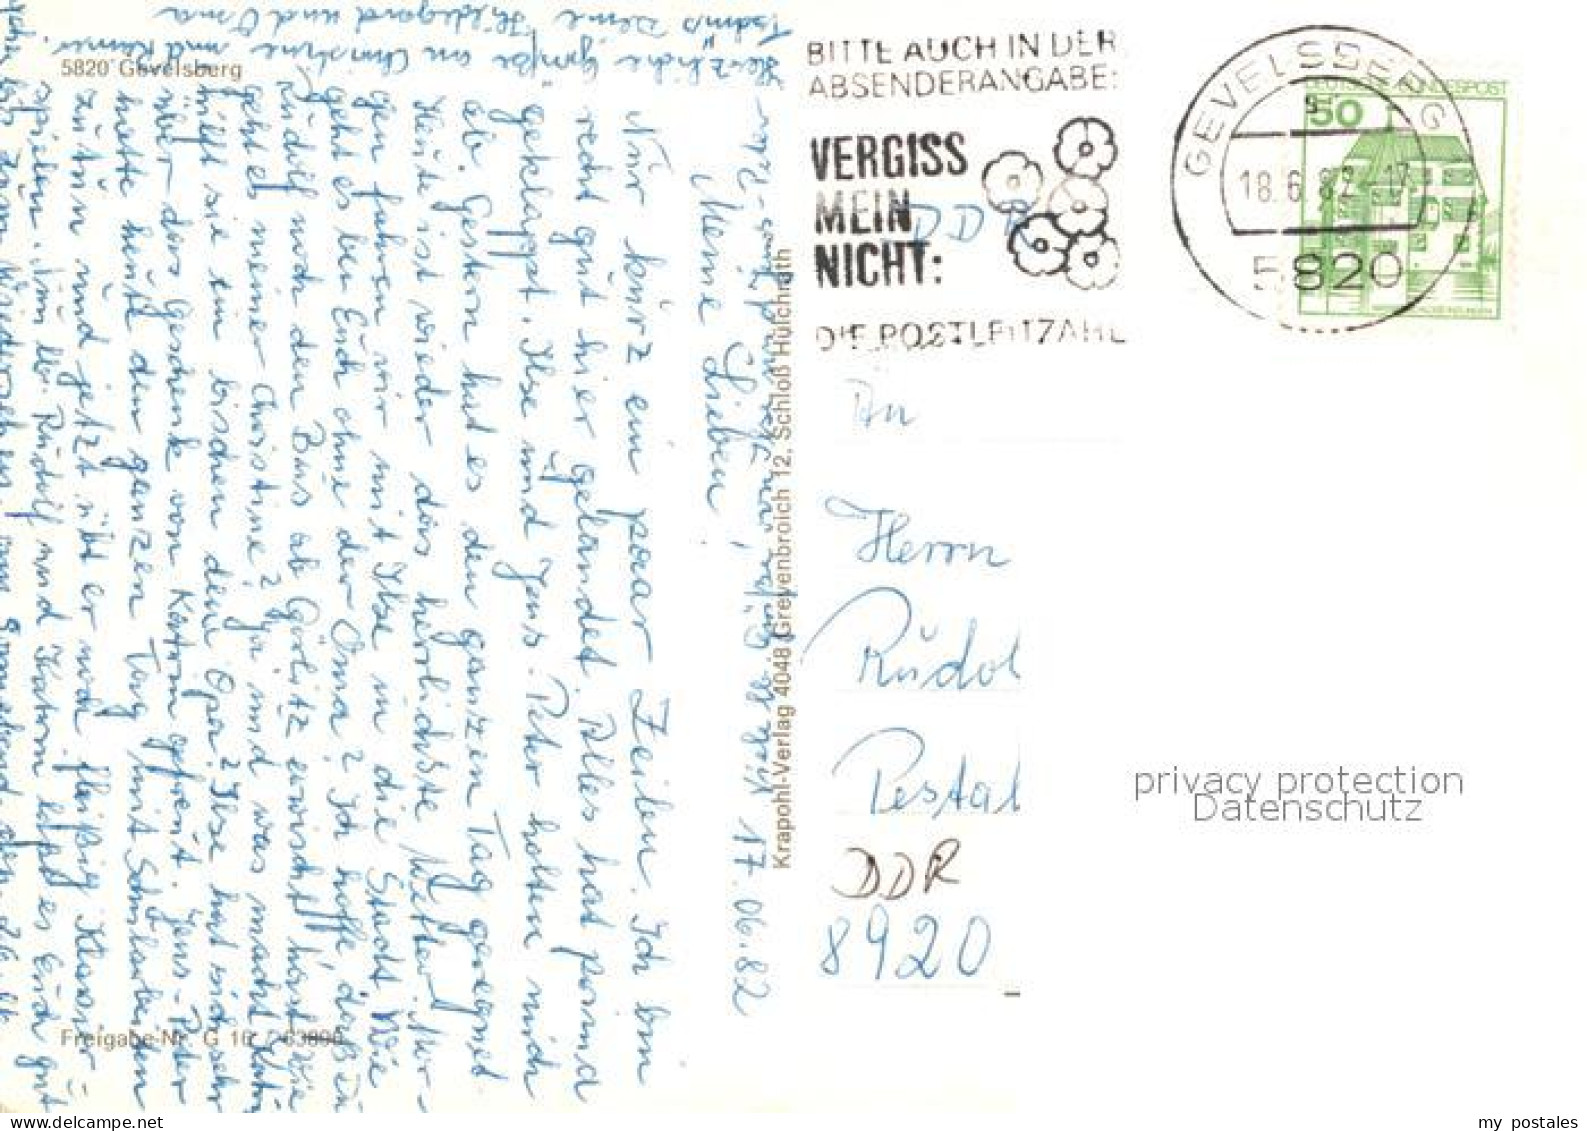 5820 Gevelsberg
BITTE AUCH IN DER
ABSENDERANGABE:
VERGISS
MEIN
NICHT:
DIE POSTLEITZAHL
DDR
GEVELSBERG
18.6.82-17
5820
DEUTSCHE BUNDESPOST
50
Krapohl-Verlag 4048 Grevenbroich 12, Schloß Hülchrath
Freigabe-Nr. G 16 / 63890
Gevelsberg, 17.06.82
Meine Lieben!
Nur kurz ein paar Zeilen. Ich bin
recht gut hier gelandet. Alles hat prima
geklappt. Ilse und Jens-Peter holten mich
ab. Gestern hat es den ganzen Tag geregnet.
Heute ist wieder das herrlichste Wetter. Mor-
gen fahren wir mit Ilse in die Stadt. Wie
geht es bei Euch ohne der Oma? Ich hoffe, daß
Rudolf noch den Bus ab Görlitz erwischt hat. Wie
geht es meiner Christine? Ja und was macht Katrin
hilft sie ein bischen dem Opa? Ilse hat sich sehr
über das Geschenk von Katrin gefreut. Jens-Peter
hatte heute den ganzen Tag mit Schularbeiten
zu tun und jetzt übt er noch fleißig Klavier-
spielen. Nun lb. Rudolf und Katrin laßt es Euch gut
Herzliche Grüße an Christine und Rainer.
Tschüß Deine Hildegard und Oma
An
Herrn
Rudol
Pestal
DDR
8920
privacy protection
Datenschutz
my postales